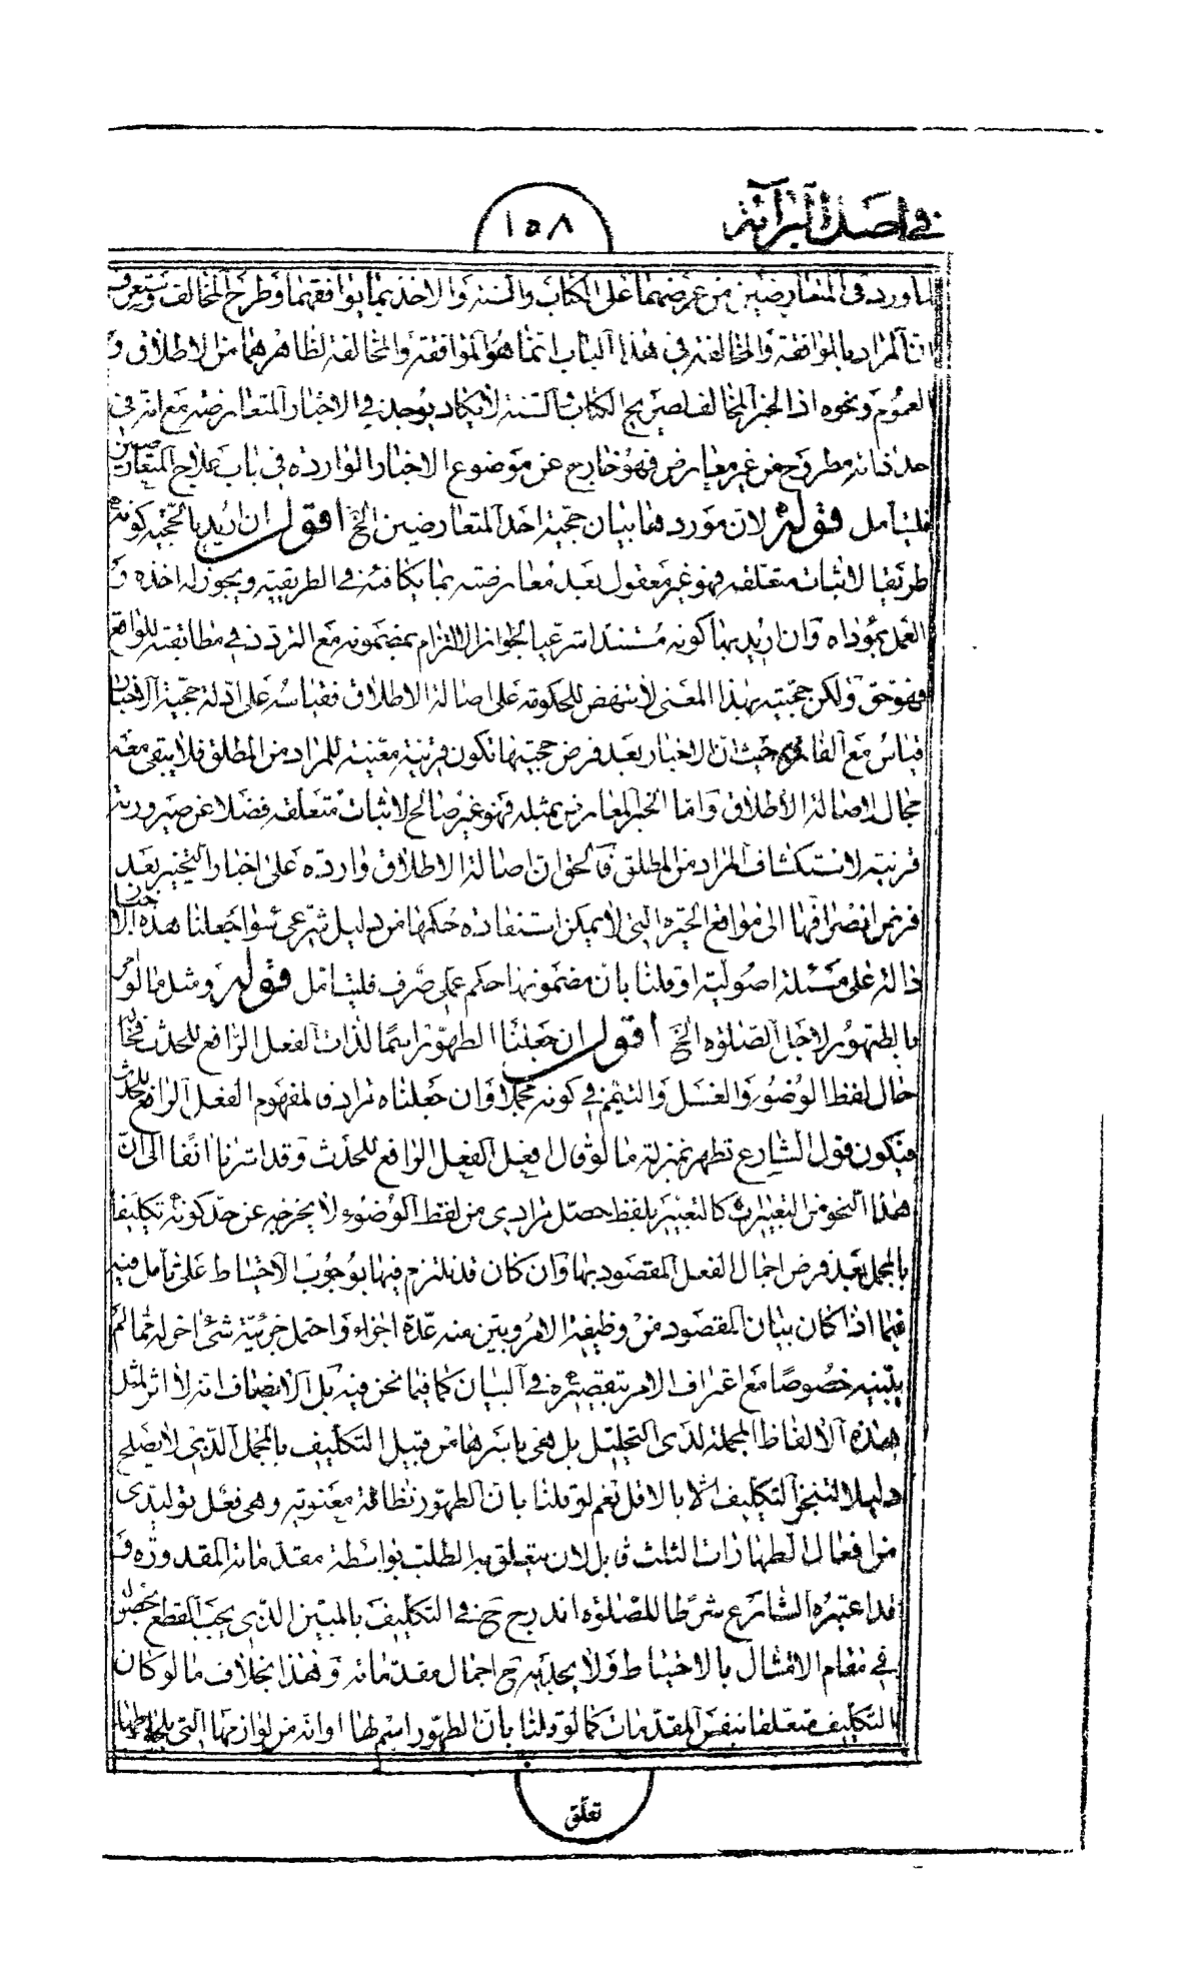 في اصالة البرائة
١٥٨
ما ورد في المتعارضين من عرضهما على الكتاب والسنة والاخذ بما يوافقهما وطرح المخالف وستعرف
ان المراد بالموافقة والمخالفة في هذا الباب انما هو الموافقة والمخالفة لظاهرهما من الاطلاق و
العموم ونحوه اذ الخبر المخالف لصريح الكتاب والسنة لا يكاد يوجد في الاخبار المتعارضة مع انه في
حد ذاته مطروح من غير معارض فهو خارج عن موضوع الاخبار الواردة في باب علاج المتعارضين
فليتامل قوله لان موردها بيان حجية احد المتعارضين الخ اقول ان اريد بالحجية كونه
طريقا لاثبات متعلقه فهو غير معقول بعد معارضته بما يكافئه في الطريقية ويجوز له اخذه و
العمل بمؤداه وان اريد بها كونه مستندا شرعيا لجواز الالتزام بمضمونه مع التردد في مطابقته للواقع
فهو حق ولكن حجيته بهذا المعنى لا ينهض للحكومة على اصالة الاطلاق فقياسه على ادلة حجية الاخبار
قياس مع الفارق حيث ان الاخبار بعد فرض حجيتها تكون قرينة معينة للمراد من المطلق فلا يبقى معه
مجال لاصالة الاطلاق واما الخبر المعارض بمثله فهو غير صالح لاثبات متعلقه فضلا عن صيرورته
قرينة لاستكشاف المراد من المطلق فالحق ان اصالة الاطلاق واردة على اخبار التخيير بعد
فرض انصرافها الى مواقع الحيرة التي لا يمكن استفادة حكمها من دليل شرعي سواء جعلنا هذه الاخبار
دالة على مسئلة اصولية او قلنا بان مضمونها حكم عملي صرف فليتامل قوله ومثل ما لو امر
بالطهور لاجل الصلوة الخ اقول ان جعلنا الطهور اسما لذات الفعل الرافع للحدث فحاله
حال لفظ الوضوء والغسل والتيمم في كونه مجملا وان جعلناه مرادفا لمفهوم الفعل الرافع للحدث
فيكون قول الشارع تطهر بمنزلة ما لو قال افعل الفعل الرافع للحدث وقد اشرنا انفا الى ان
هذا النحو من التعبيرات كالتعبير بلفظ حصّل مرادي من لفظ الوضوء لا يخرجه عن حد كونه تكليفا
بالمجمل بعد فرض اجمال الفعل المقصود بها وان كان قد نلتزم فيها بوجوب الاحتياط على تأمل فيه
فيما اذا كان بيان المقصود من وظيفة الامر وبين منه عدة اجزاء واحتمل جزئية شئ اخر له مما لم
يبينه خصوصا مع اعتراف الامر بتقصيره في البيان كما فيما نحن فيه بل الانصاف انه لا اثر لمثل
هذه الالفاظ المجملة لدى التحليل بل هي باسرها من قبيل التكليف بالمجمل الذي لا يصلح
دليلا لتنجز التكليف الا بالاقل نعم لو قلنا بان الطهور نظافة معنوية وهي فعل توليدى
من افعال الطهارات الثلث قابل لان يتعلق به الطلب بواسطة مقدماته المقدورة و
قد اعتبره الشارع شرطا للصلوة اندرج ح في التكليف بالمبين الذي يجب القطع بحصوله
في مقام الامتثال بالاحتياط ولا يجديه ح اجمال مقدماته وهذا بخلاف ما لو كان
التكليف متعلقا بنفس المقدمات كما لو قلنا بان الطهور اسم لها او انه من لوازمها التي
تعلّق